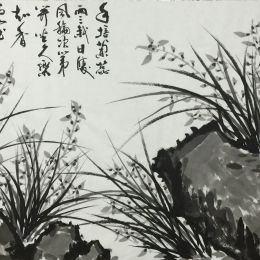 手培蘭蕊
兩三栽日暖
風和次第
開坐久不
知香